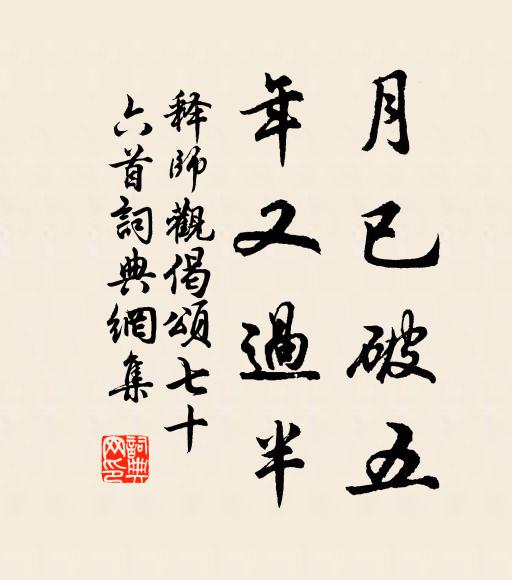 月已破五
年又過半
释師觀偈頌七十
六首詞典網集
詞典网印